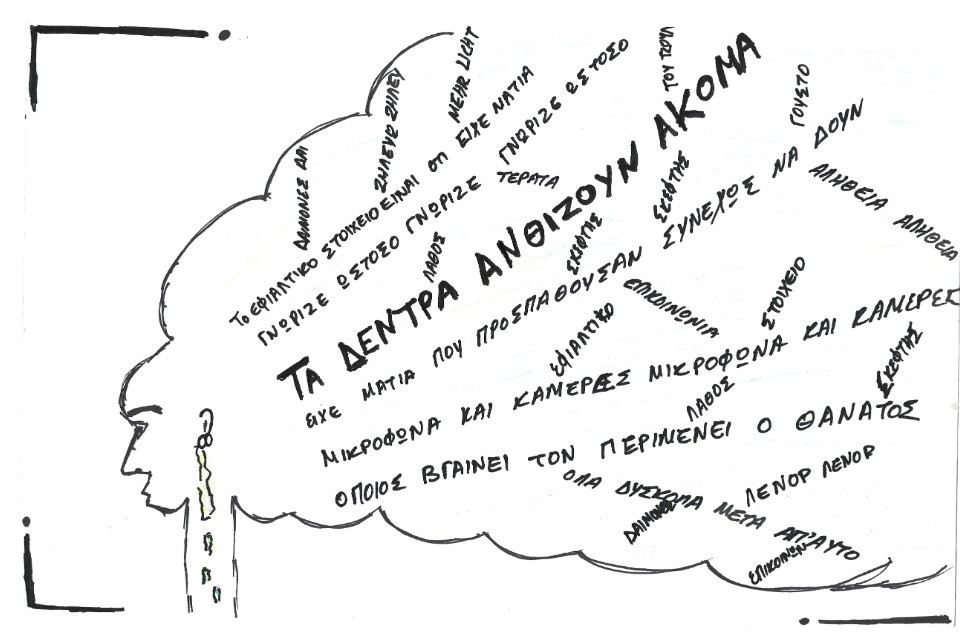 ΔΑΙΜΟΝΕΣ ΔΑΙ
ΖΗΛΕΥΩ ΖΗΛΕΥ
MEHR LICHT
ΤΟ ΕΦΙΑΛΤΙΚΟ ΣΤΟΙΧΕΙΟ ΕΙΝΑΙ ΟΤΙ ΕΙΧΕ ΝΑΤΙΑ
ΓΝΩΡΙΖΕ ΩΣΤΟΣΟ ΓΝΩΡΙΖΕ ΓΝΩΡΙΖΕ ΩΣΤΟΣΟ
ΤΕΡΑΤΑ
ΛΑΘΟΣ
ΤΑ ΔΕΝΤΡΑ ΑΝΘΙΖΟΥΝ ΑΚΟΜΑ
ΣΚΕΦΤΗΣ
ΣΚΕΦΤΗΣ
ΓΟΥΣΤΟ
ΕΙΧΕ ΜΑΤΙΑ ΠΟΥ ΠΡΟΣΠΑΘΟΥΣΑΝ ΣΥΝΕΧΩΣ ΝΑ ΔΟΥΝ
ΑΛΗΘΕΙΑ ΑΛΗΘΕΙΑ
ΕΠΙΚΟΙΝΩΝΙΑ
ΕΦΙΑΛΤΙΚΟ
ΣΤΟΙΧΕΙΟ
ΜΙΚΡΟΦΩΝΑ ΚΑΙ ΚΑΜΕΡΕΣ ΜΙΚΡΟΦΩΝΑ ΚΑΙ ΚΑΜΕΡΕΣ
ΛΑΘΟΣ
ΣΚΕΦΤΗΣ
ΟΠΟΙΟΣ ΒΓΑΙΝΕΙ ΤΟΝ ΠΕΡΙΜΕΝΕΙ Ο ΘΑΝΑΤΟΣ
ΟΛΑ ΔΥΣΚΟΛΑ ΜΕΤΑ ΑΠ'ΑΥΤΟ
ΛΕΝΟΡ ΛΕΝΟΡ
ΕΠΙΚΟΙΝΩΝ